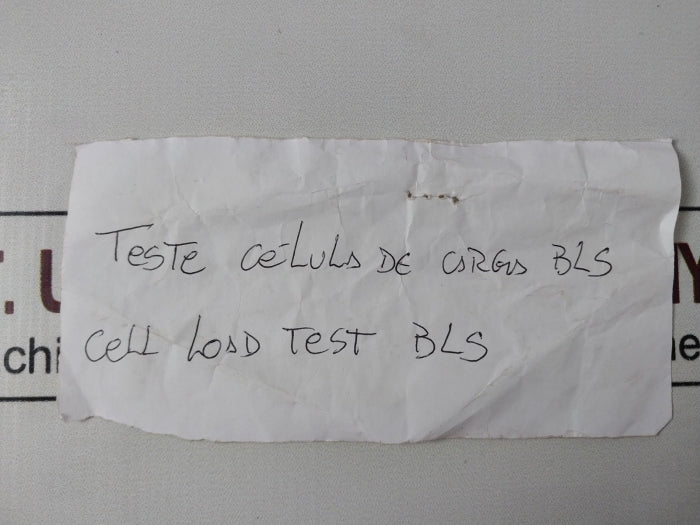 TESTE CÉLULA DE CARGA BLS
CELL LOAD TEST BLS
. U
Y
chi
ne